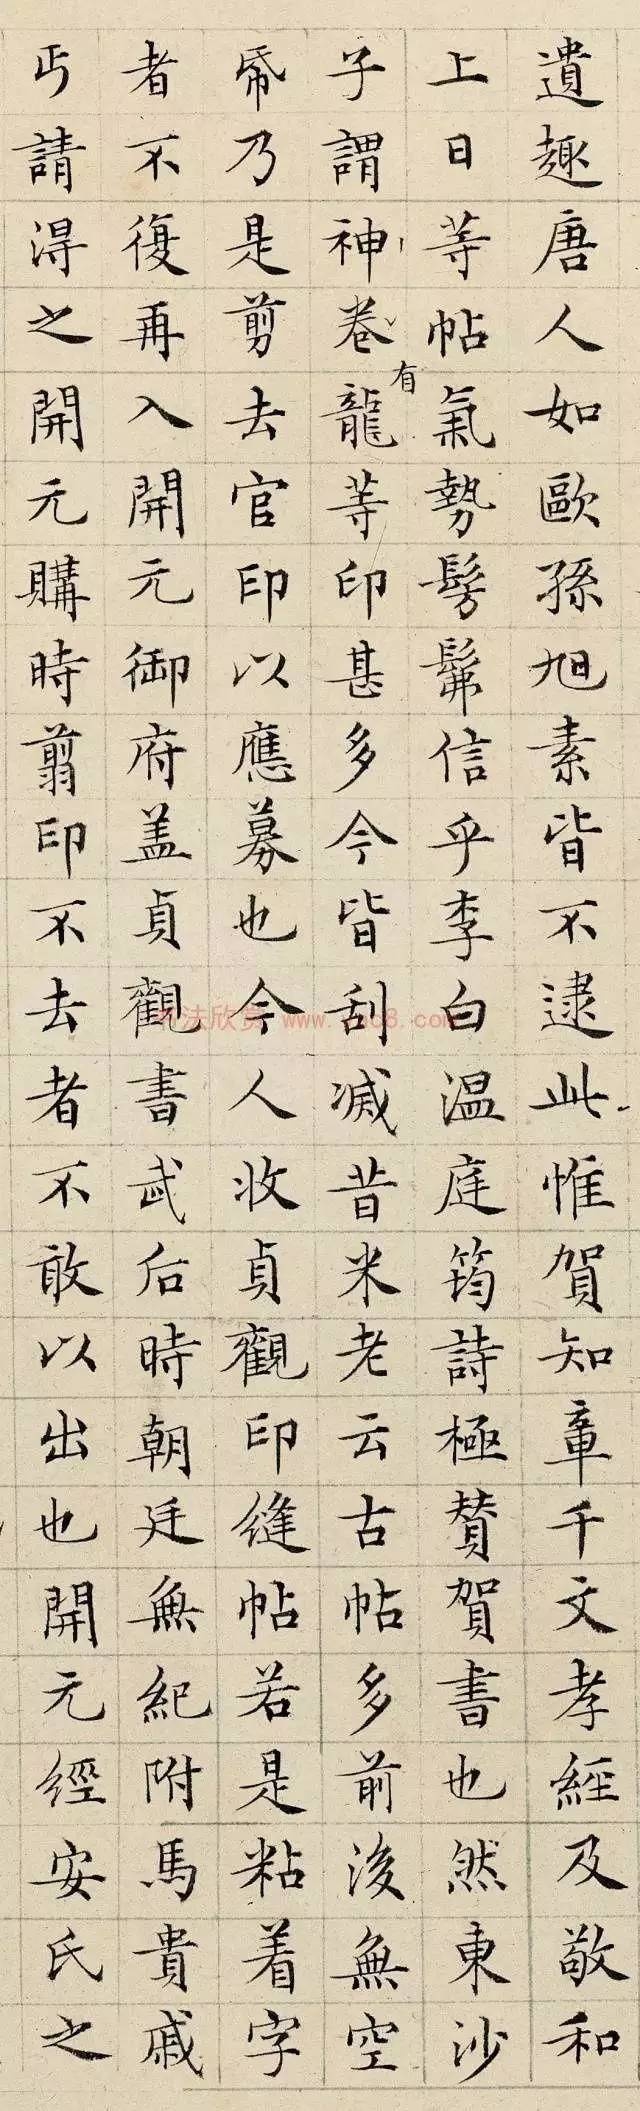 遺趣唐人如歐孫旭素皆不逮此惟賀知章千文孝經及敬和
上日等帖氣勢髣髴信乎李白温庭筠詩極賛賀書也然東沙
子謂神卷龍等印甚多今皆刮滅昔米老云古帖多前後無空
有
帋乃是剪去官印以應募也今人收貞觀印縫帖若是粘着字
者不復再入開元御府盖貞觀書武后時朝廷無紀附馬貴戚
丐請得之開元購時翦印不去者不敢以出也開元經安氏之